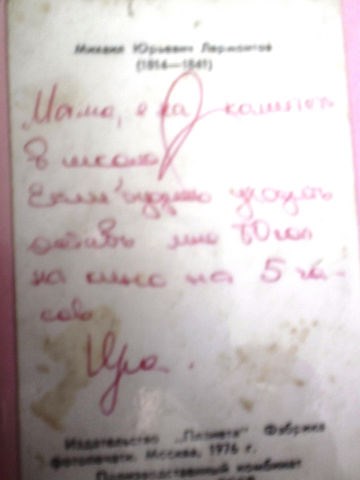 Михаил Юрьевич Лермонтов
(1814—1841)
Мама, я на
в школе
Если будешь уходить
оставь мне
на кино на 5 ча-
сов
Ира.
Издательство „Планета" Фабрика
фотопечати. Москва, 1976 г.
Производственный комбинат